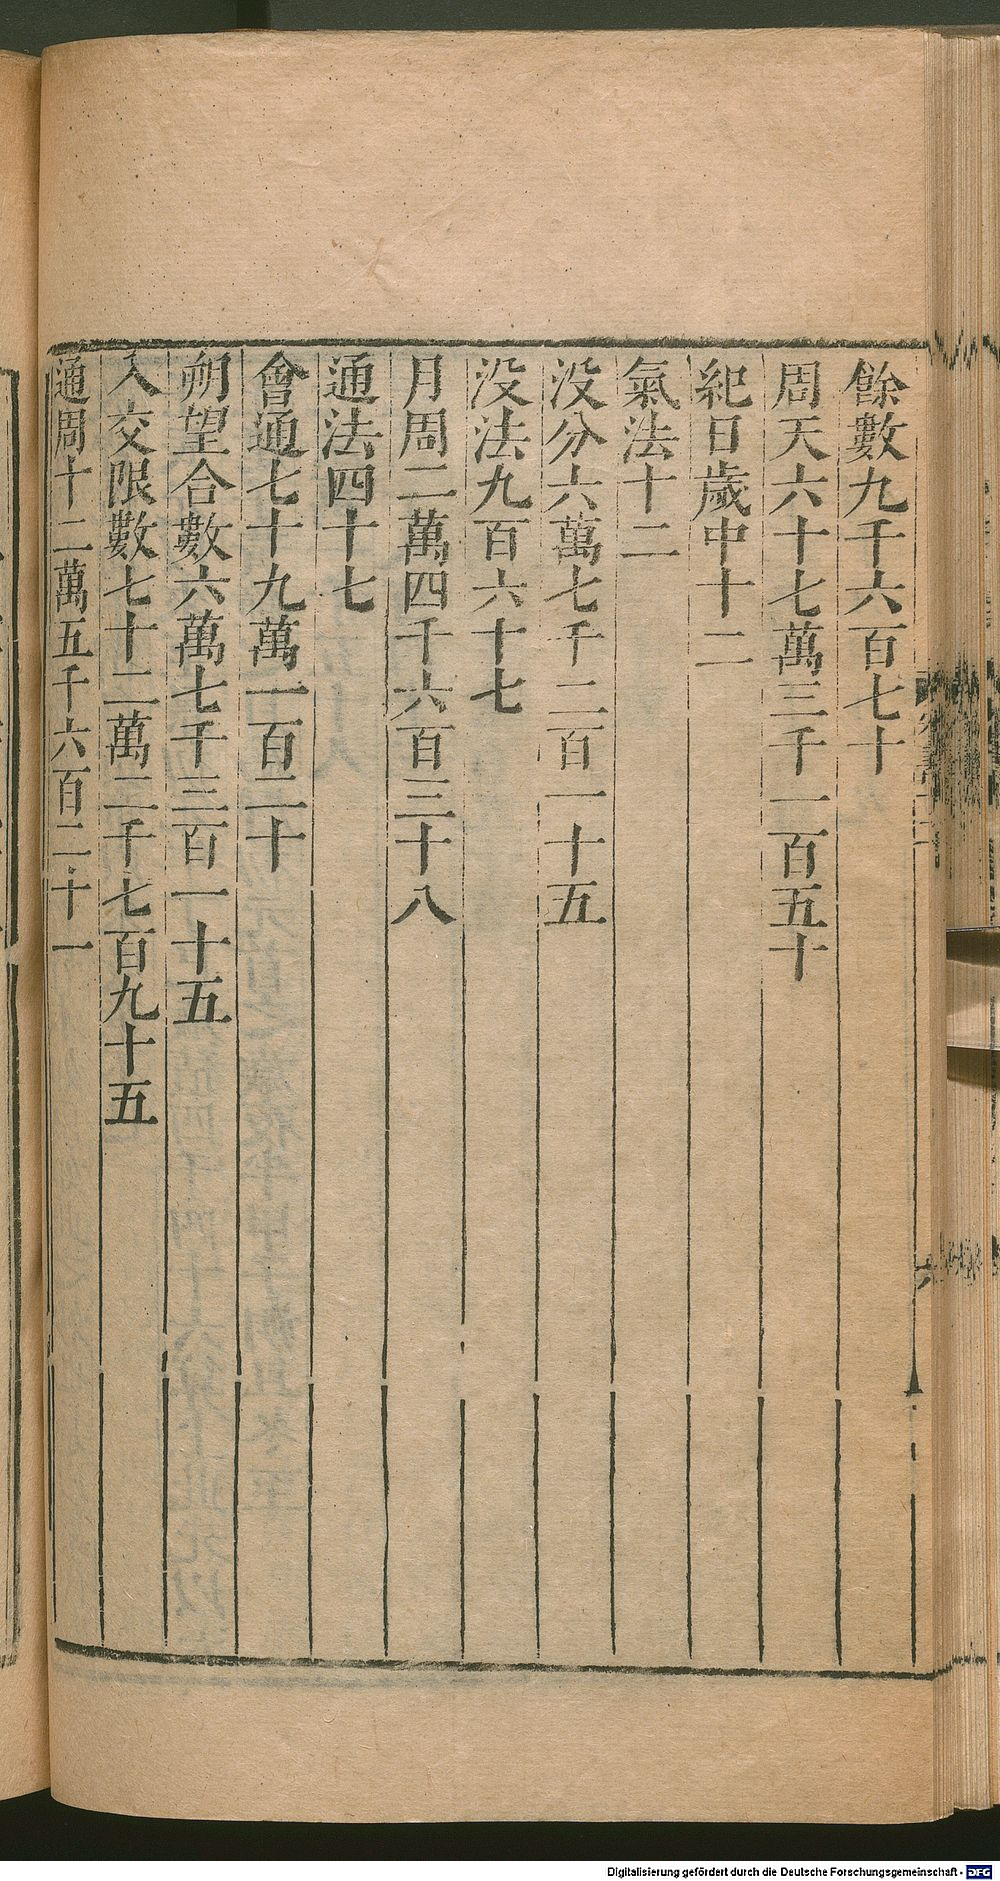 餘數九千六百七十
周天六十七萬三千一百五十
紀日歲中十二
氣法十二
没分六萬七千二百一十五
没法九百六十七
月周二萬四千六百三十八
通法四十七
會通七十九萬一百二十
朔望合數六萬七千三百一十五
入交限數七十二萬二千七百九十五
通周十二萬五千六百二十一
六
Digitalisierung gefördert durch die Deutsche Forschungsgemeinschaft - DFG